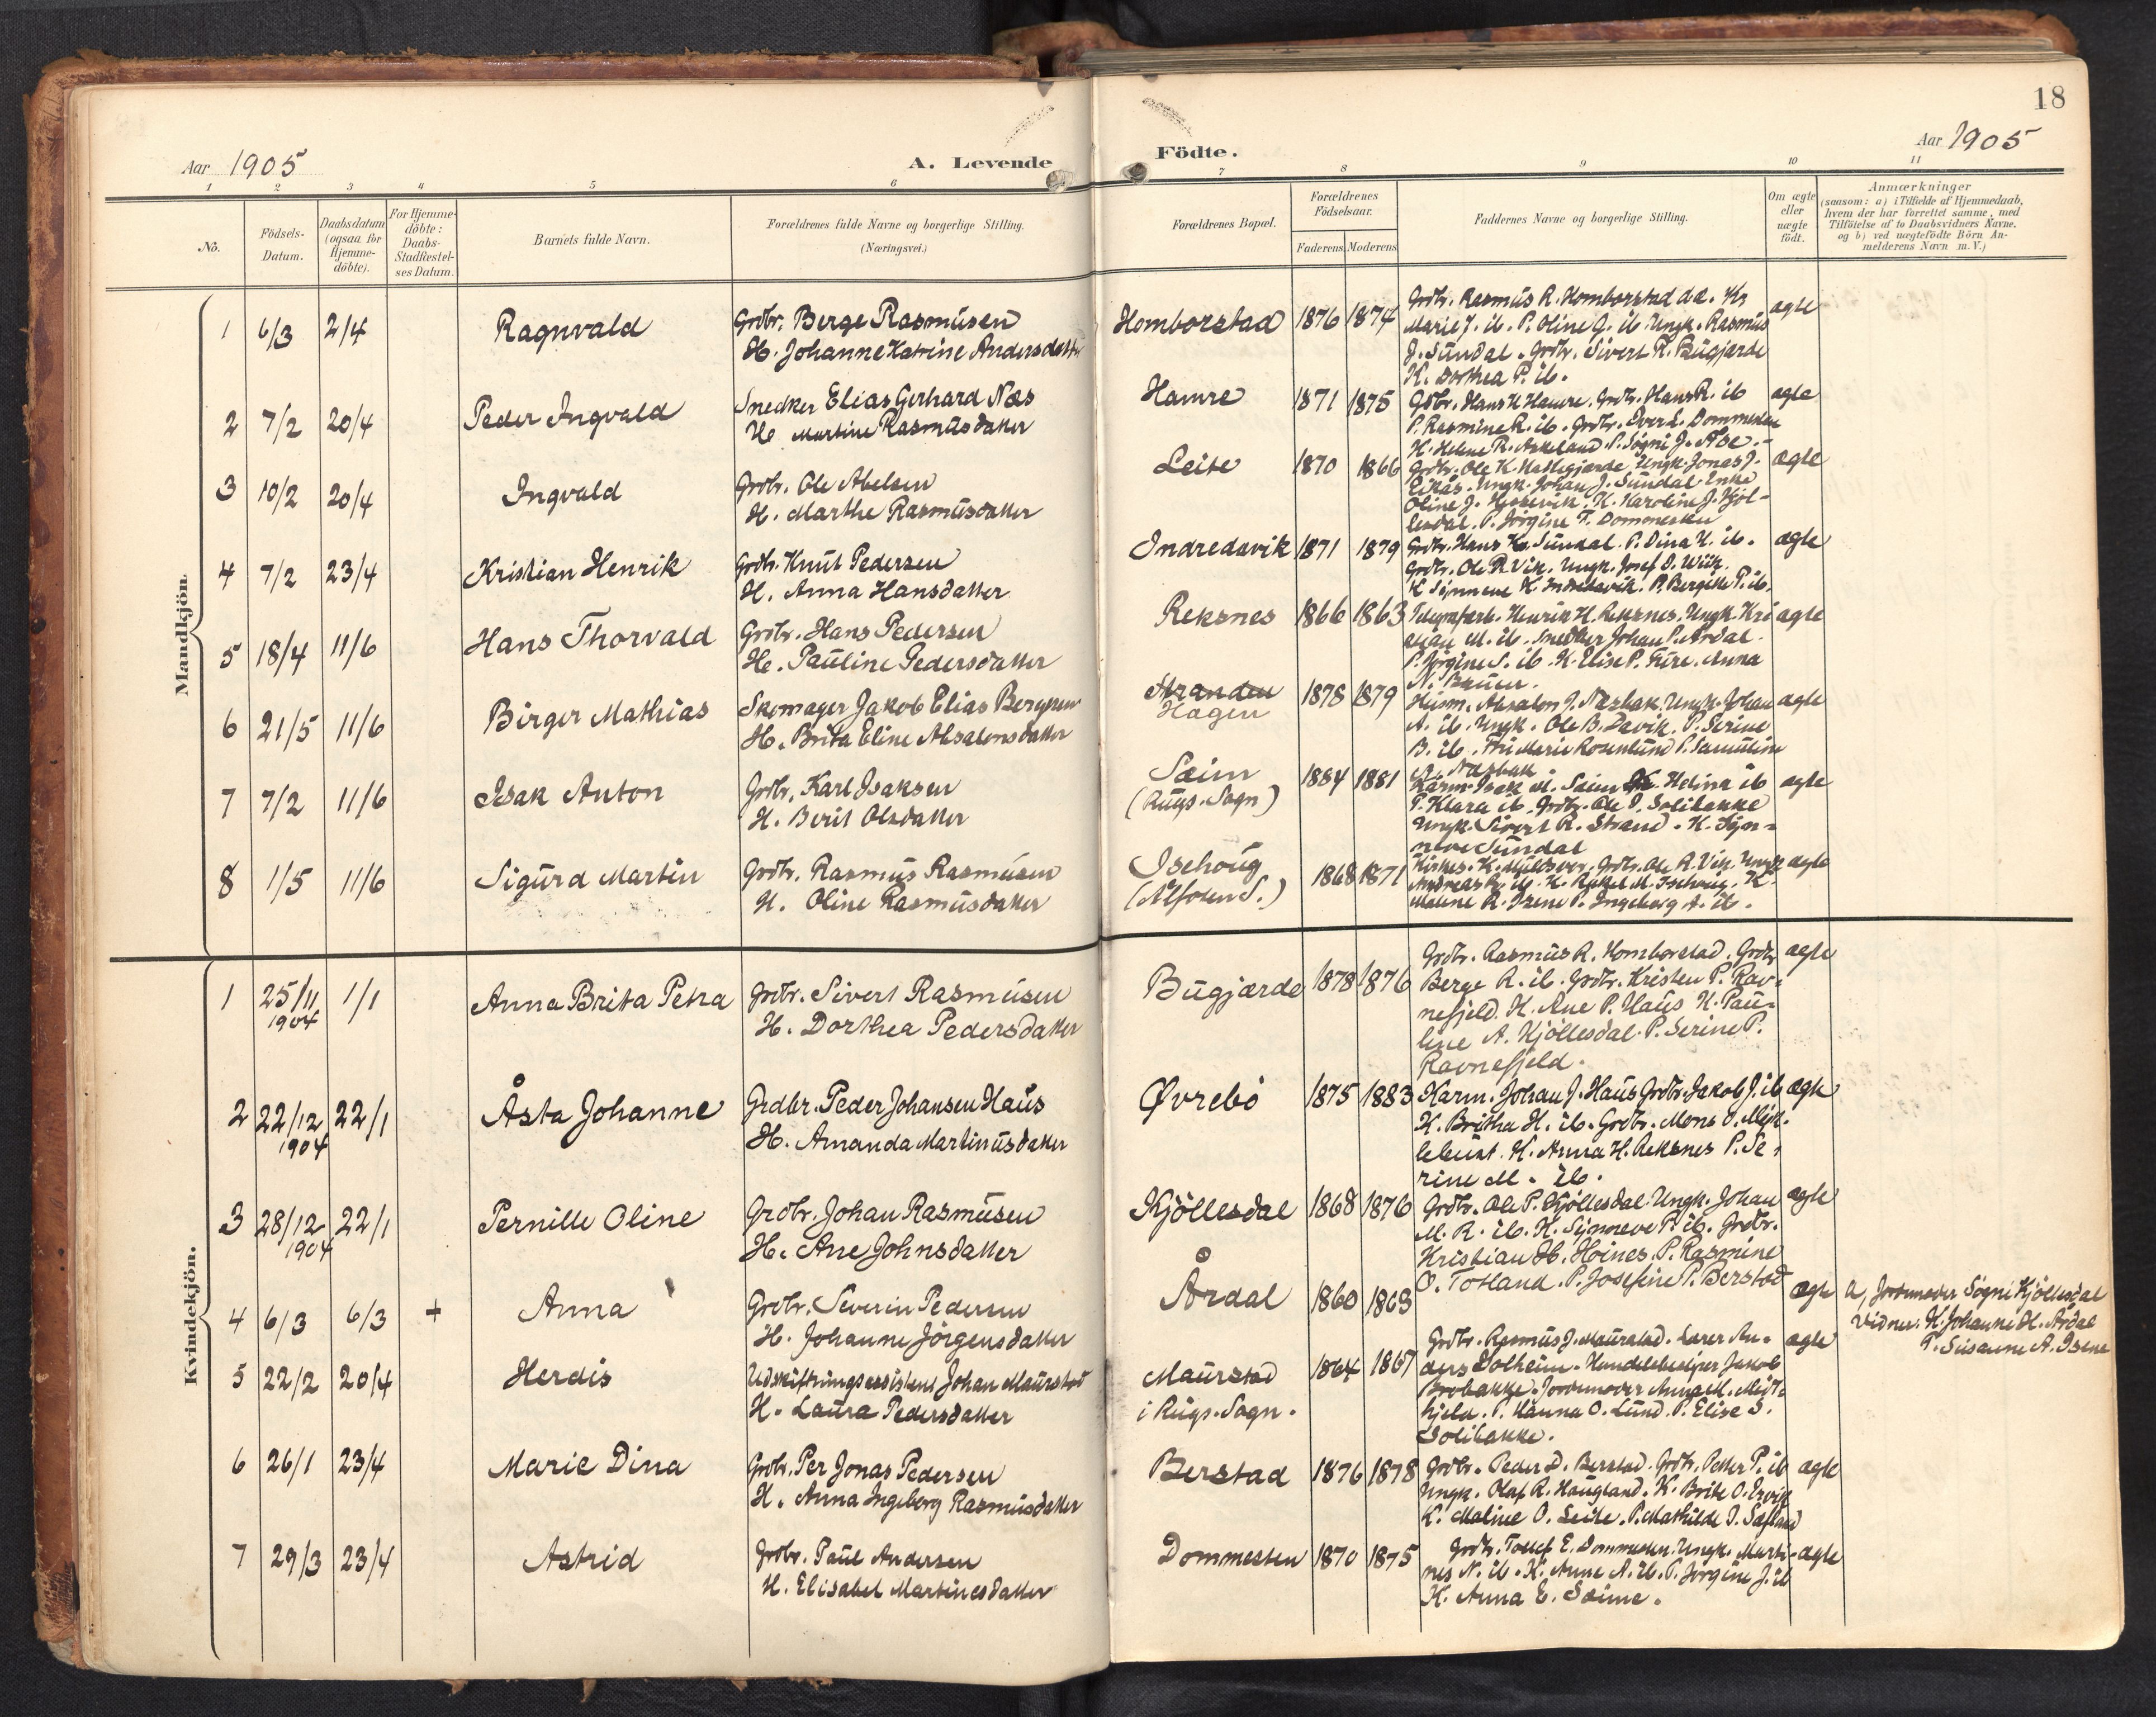 18
Aar 1905
A. Levende Födte.
Aar 1905
1 2 3 4 5 6 7 8 9 10 11
No.
Födsels-
Datum.
Daabsdatum
(ogsaa for
Hjemme-
döbte).
For Hjemme-
döbte:
Daabs-
Stadfæstel-
ses Datum.
Barnets fulde Navn.
Forældrenes fulde Navne og borgerlige Stilling.
(Næringsvei.)
Forældrenes Bopæl.
Forældrenes
Födselsaar.
Faderens. Moderens
Faddernes Navne og borgerlige Stilling.
Om ægte
eller
uægte
födt.
Anmærkninger
(saasom: a) i Tilfælde af Hjemmedaab,
hvem der har forrettet samme, med
Tilföielse af to Daabsvidners Navne,
og b) ved uægtefödte Börn An-
melderens Navn m. V.)
Mandkjön.
1 6/3 2/4 Ragnvald
Grdbr. Berge Rasmüsen
H. Johanne Katrine Andersdatter
Homborstad 1876 1874
Grdbr. Rasmüs R. Homborstad d.æ. K.
Marie J. ib. P. Oline J. ib Ungk. Rasmüs
J. Sündal. Grdbr. Sivert R. Bügjærde
K. Dorthea P. ib.
ægte
2 7/2 20/4 Peder Ingvald
Snedker Elias Gerhard Næs
H. Martine Rasmüsdatter
Hamre 1871 1875
Gdbr. Hans H Hamre. Grdbr. Hans R. ib
P. Rasmine R. ib. Grdbr. Iver L. Dommesten
H. Helene R. Askeland. P. Søgni J. Aase.
ægte
3 10/2 20/4 Ingvald
Grdbr. Ole Abelsen
H. Marthe Rasmüsdatter
Leite 1870 1866
Grdbr. Ole K. Hattegjærde Ungk. Jonas J.
Eikås. Ungk. Johan J. Sündal Enke
Oline J. K. Karoline J. Kjöl-
lesdal. P. Jörgine T. Dommesten
ægte
4 7/2 23/4 Kristian Henrik
Grdbr. Knüt Pedersen
H. Anna Hansdatter
Indredavik 1871 1879
Grdbr. Hans K. Sündal. P. Dina K. ib.
Grdbr. Ole R. Vik. Ungk. Josef D. Wiik.
K Synneve K. Indredavik. P. Bergitte P. ib.
ægte
5 18/4 11/6 Hans Thorvald
Grdbr. Hans Pedersen
H. Pauline Pedersdatter
Reksnes 1866 1863
Telegrafarb. Henrik H. Reksnes. Ungk. Kri
stian M. ib. Snedker Johan P. Årdal.
P. Jörgine S. ib. K. Elise P. Füre. Anna
N. Bauer.
ægte
6 21/5 11/6 Birger Mathias
Skomager Jakob Elias Bergesen
H. Brita Eline Absalonsdatter
Stranden
Hagen
1878 1879
Absalon J. Næsbak. Ungk. Johan
A. ib. Ungk. Ole B. Davik. P. Serine
B. ib. Marie Rosenlünd P. Samüline
A. Næsbak
ægte
7 7/2 11/6 Isak Anton
Grdbr. Karl Isaksen
H. Berit Olsdatter
Sæim
(Rügs. Sogn)
1884 1881
Kårm. Isak M. Seim K. Helina ib
P. Klara ib. Grdbr. Ole P. Solibakke
Ungk. Sivert R. Strand. K. Syn-
nøve Sündal
ægte
8 1/5 11/6 Sigürd Martin
Grdbr. Rasmüs Rasmüsen
H. Oline Rasmüsdatter
Isehoüg
(Ålfoten S.)
1868 1871
Kirkes. K. Myklesver. Grdbr. Ole R. Vik. Ungk.
Andreas R. ib. K. Rakel M. Isehoüg. K.
Malene R. Isene P. Ingeborg A. ib.
ægte
Kvindekjön.
1 25/11 1904 1/1 Anna Brita Petra
Grdbr. Sivert Rasmüsen
H. Dorthea Pedersdatter
Bügjærde 1878 1876
Grdbr. Rasmüs R. Homborstad. Grdbr.
Berge R. ib. Grdbr. Kristen P. Rav-
nefjeld. K. Ane P. Haüs K. Paü-
line A. Kjöllesdal. P. Serine P.
Ravnefjeld.
ægte
2 22/12 1904 22/1 Åsta Johanne
Grdbr. Peder Johansen Haüs
H. Amanda Martinüsdatter
Øvrebö 1875 1883
Kårm. Johan J. Haüs Grdbr. Jakob J. ib
K. Britha H. ib. Grdbr. Mons O. Myk-
lebüst. K. Anna H. Reksnes P. Se-
rine M. ib.
ægte
3 28/12 1904 22/1 Pernille Oline
Grdbr. Johan Rasmüsen
H. Ane Johnsdatter
Kjöllesdal 1868 1876
Grdbr. Ole P. Kjöllesdal. Ungk. Johan
M. R. ib. K. Synneve P. ib. Grdbr.
Kristian H. Hoines. P. Rasmine
O. Totland. P. Josefine P. Berstad
ægte
4 6/3 6/3 + Anna
Grdbr. Severin Pedersen
H. Johanne Jörgensdatter
Årdal 1860 1863
ægte
a, Jordmoder Søgni Kjöllesdal
Vidner: K. Johanne H. Årdal
P. Süsanne A. Isene
5 22/2 20/4 Herdis
Udskiftningsassistent Johan Maürstad
H. Laüra Pedersdatter
Maürstad
i Rügs. Sogn.
1864 1867
Grdbr. Rasmüs J. Maürstad. Lærer An-
ders Solheim. Handelsbestyrer Jakob
Brobakke. Jordemoder Anna M. Midt-
hjeld. P. Hanna O. Lünd. P. Elise S.
Solibakke.
ægte
6 26/1 23/4 Marie Dina
Grdbr. Per Jonas Pedersen
H. Anna Ingeborg Rasmüsdatter
Berstad 1876 1878
Grdbr. Peder D. Berstad. Grdbr. Petter P. ib
Ungk. Olaf R. Haügland. K. Brite O. Ervik
K. Maline O. Leite. P. Mathilde I. Sætland
ægte
7 29/3 23/4 Astrid
Grdbr. Paül Andersen
H. Elisabet Martinesdatter
Dommesten 1870 1875
Grdbr. Tollef E. Dommesten. Ungk. Marti-
nes N. ib. K. Anne A. ib. P. Jörgine J. ib
K. Anna E. Sæime.
ægte